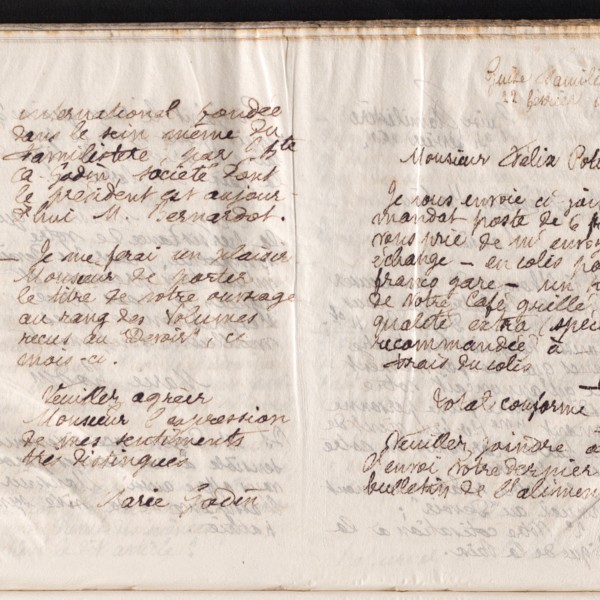 international fondée
dans le sein même du
Familistère, par J. Bte
A. Godin, société dont
le président est aujour-
d'hui M. Bernardot.
— Je me ferai un plaisir
Monsieur de porter
le titre de votre ouvrage
au rang des volumes
reçus au "Devoir", ce
mois-ci.
Veuillez agréer
Monsieur l'expression
de mes sentiments
très distingués
Marie Godin
Guise Famili
22 février
Monsieur Félix Pot
Je vous envoie ci join
mandat poste de 6 f
vous prie de m'envoy
échange – en colis po
franco gare – un
de votre Café grillé
qualité extra (spéc
recommandée à –
Frais du colis
Total conforme
Veuillez joindre à
l'envoi votre dernier
bulletin de l'alimen